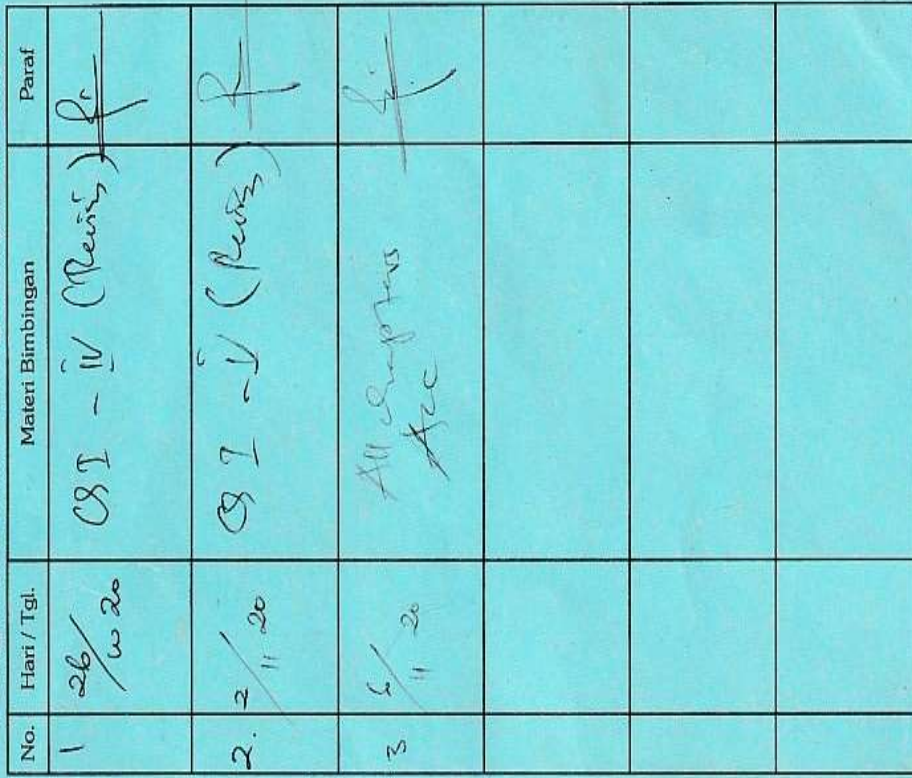 No. Hari / Tgl. Materi Bimbingan Paraf
1 26/10 20 I - IV (Revisi)
2. 2/11 20 I - V (Revisi)
3 /11 20 All chapters
Acc